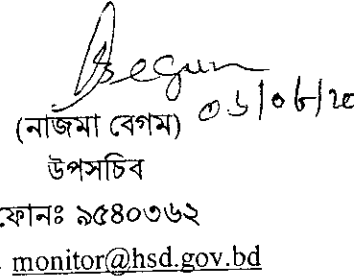 Begum
(নাজমা বেগম)
উপসচিব
ফোনঃ ৯৫৪০৩৬২
monitor@hsd.gov.bd